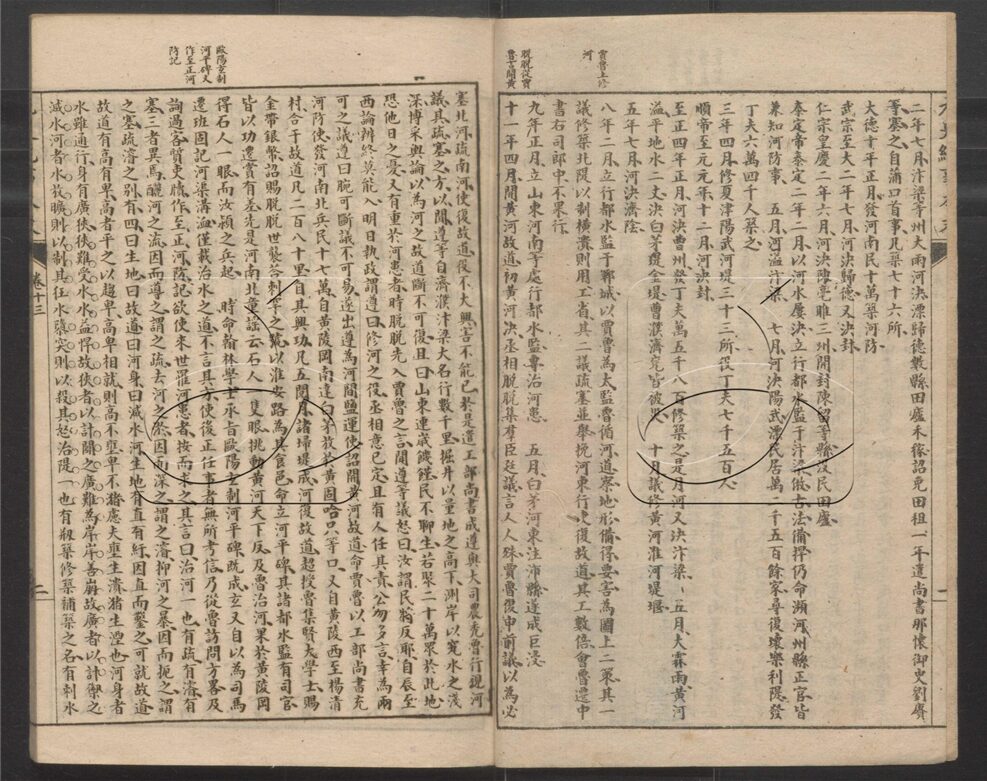 二年七月汴梁等州大雨河決漂歸德數縣田廬禾稼詔免田租一年遣尚書那懷御史劉賡
等塞之自蒲口首事凡築七十六所
大德十年正月發河南民十萬築河防
武宗至大二年七月河決歸德又決封
仁宗皇慶二年六月河決陳亳睢三州開封陳留等縣沒民田廬
泰定帝泰定二年二月以河水屢決立行都水監于汴梁倣古法備捍仍命瀕河州縣正官皆
兼知河防事 五月河溢汴梁 七月河決陽武漂民居萬六千五百餘家尋復壞樂利隄發
丁夫六萬四千人築之
三年四月修夏津陽武河堤三十三所役丁夫七千五百人
順帝至元元年十二月河決封
至正四年正月河決曹州發丁夫萬五千八百修築之是月河又決汴梁 五月大霖雨黃河
溢平地水二丈決白茅堤金堤曹濮濟兗皆被災 十月議修黃河淮河堤堰
五年七月河決濟陰
八年二月立行都水監于鄆城以賈魯為太監魯循河道察地形備得要害為圖上二策其一
議修築北隄以制橫潰則用工省其二議疏塞並舉挽河東行使復故道其工數倍會魯遷中
書右司郎中不果行
九年正月立山東河南等處行都水監專治河患 五月白茅河東注沛縣遂成巨浸
十一年四月開黃河故道初黃河決丞相脫脫集羣臣廷議言人人殊賈魯復申前議以為必
賈魯上修
河
脫脫從賈
魯言開黃
塞北河疏南河使復故道役不大興害不能已於是遣工部尚書成遵與大司農禿魯行視河
議其疏塞之方以聞遵等自濟濮汴梁大名行數千里掘井以量地之高下測岸以究水之淺
深博采輿論以為河之故道斷不可復且曰山東連歲饑饉民不聊生若聚二十萬眾於此地
恐他日之憂又有重於河患者時脫脫先入賈魯之言聞遵等議怒曰汝謂民將反耶自辰至
酉論辨終莫能入明日執政謂遵曰修河之役丞相意已定且有人任其責公勿多言幸為兩
可之議遵曰腕可斷議不可易遂出遵為河間鹽運使詔開黃河故道命賈魯以工部尚書充
河防使發河南北兵民十七萬自黃陵岡南達白茅放於黃固哈只等口又自黃陵西至楊清
村合于故道凡二百八十里自其興功凡五閱月諸埽堤成河復故道超授魯集賢大學士賜
金帶銀幣詔賜脫脫世襲答剌罕之號以淮安路為其食邑命立河平碑其諸都水監有司官
皆以功遷賞有差先是河南北童謠云石人一隻眼挑動黃河天下反及魯治河果於黃陵岡
得石人一眼而汝潁之兵起 時命翰林學士承旨歐陽玄制河平碑既成玄又自以為司馬
遷班固記河渠溝洫僅載治水之道不言其方使後正任事者無所考信乃從魯訪問方畧及
詢過客質吏牘作至正河防記欲使來世罹河患者按而求之其言曰治河一也有疏有濬有
塞三者異焉釃河之流因而導之謂之疏去河之淤因而深之謂之濬抑河之暴因而扼之謂
之塞疏濬之別有四曰生地曰故道曰河身曰減水河生地有直有紆因直而鑿之可就故道
故道有高有卑高者平之以趨卑高卑相就則高不壅卑不瀦慮夫壅生潰瀦生湮也河身者
水雖通行身有廣狹狹難受水水益悍故狹者以計闢之廣難為岸岸善崩故廣者以計禦之
減水河者水放曠則以制其狂水隳突則以殺其怒治隄一也有刱築修築補築之名有刺水
歐陽玄制
河平碑又
作至正河
防記
卷十三
一
二